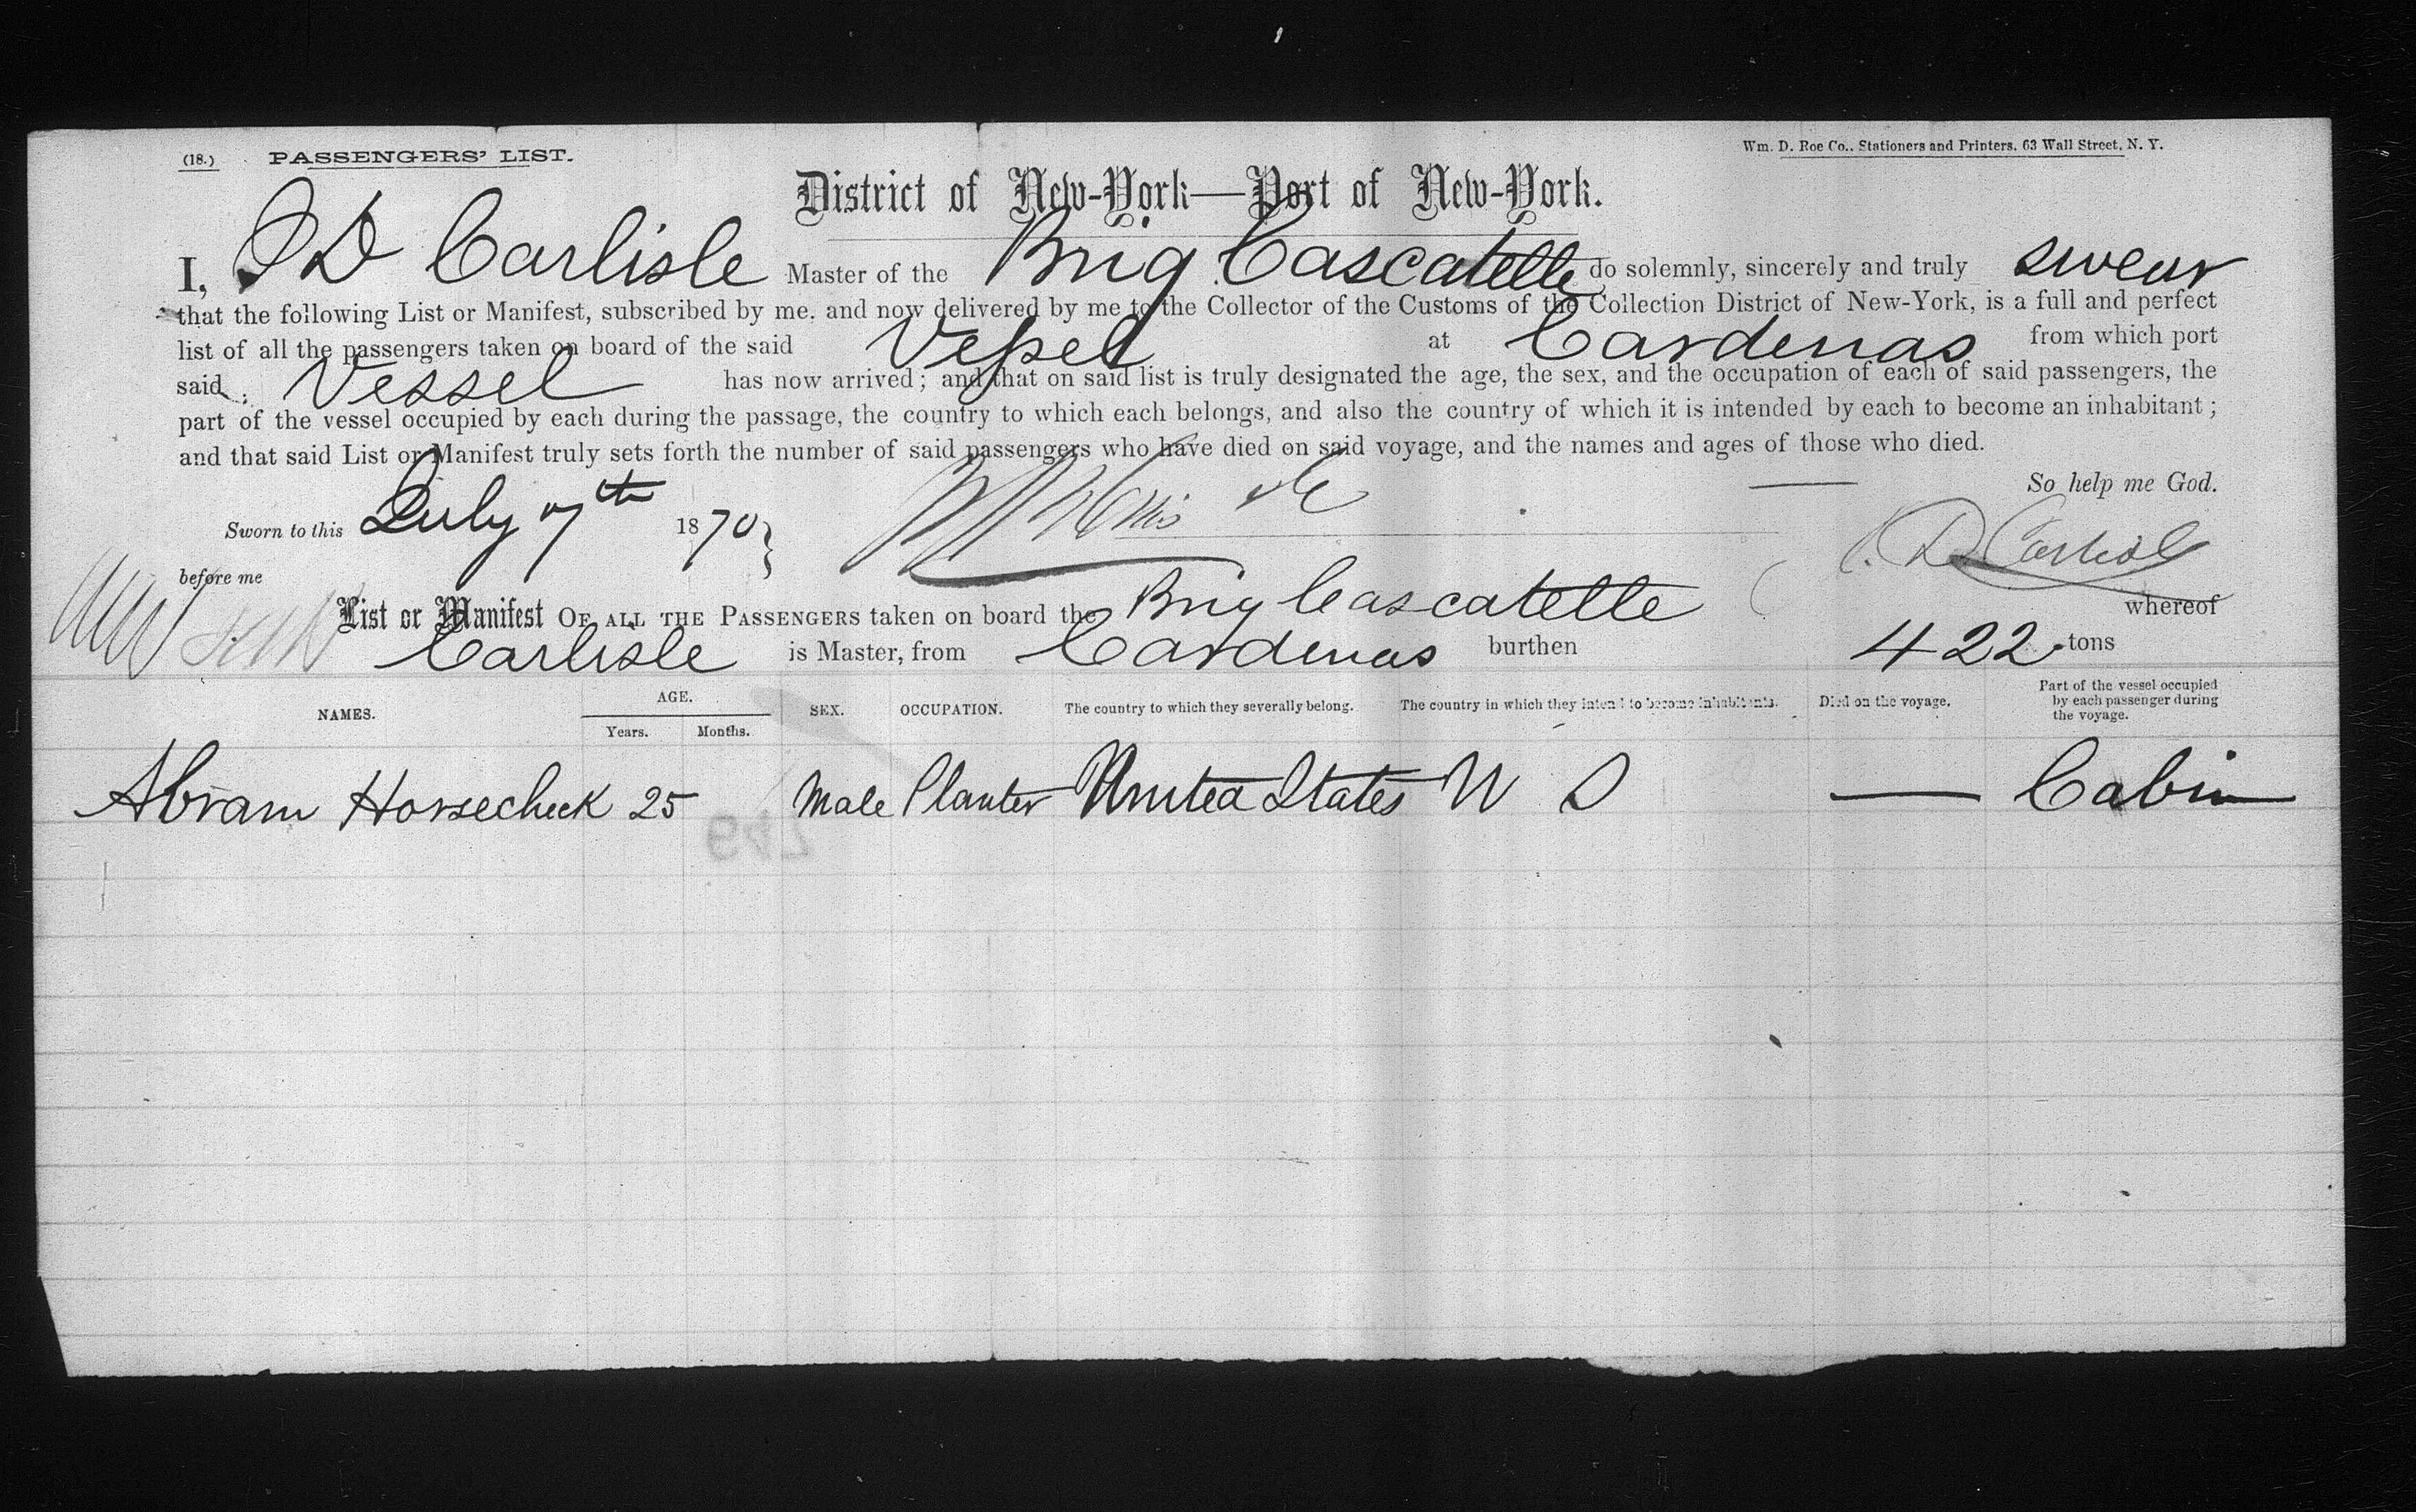 (18.) PASSENGERS' LIST. Wm. D. Roe Co., Stationers and Printers, 63 Wall Street, N. Y.
District of New-York—Port of New-York.
I, J D Carlisle Master of the Brig Cascatelle do solemnly, sincerely and truly swear
that the following List or Manifest, subscribed by me, and now delivered by me to the Collector of the Customs of the Collection District of New-York, is a full and perfect
list of all the passengers taken on board of the said Vessel at Cardenas from which port
said Vessel has now arrived; and that on said list is truly designated the age, the sex, and the occupation of each of said passengers, the
part of the vessel occupied by each during the passage, the country to which each belongs, and also the country of which it is intended by each to become an inhabitant;
and that said List or Manifest truly sets forth the number of said passengers who have died on said voyage, and the names and ages of those who died.
So help me God.
Sworn to this July 7th 1870 }
D Carlisle
before me
List or Manifest OF ALL THE PASSENGERS taken on board the Brig Cascatelle whereof
Carlisle is Master, from Cardenas burthen 422 tons
NAMES. AGE. Years. Months. SEX. OCCUPATION. The country to which they severally belong. The country in which they intend to become inhabitants. Died on the voyage. Part of the vessel occupied by each passenger during the voyage.
Abram Horsecheck 25 Male Planter United States U S — Cabin